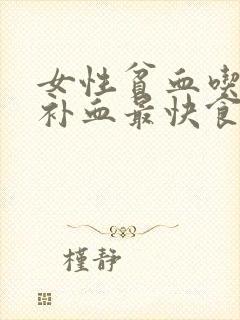 女性贫血喫
补血最快食
槿静